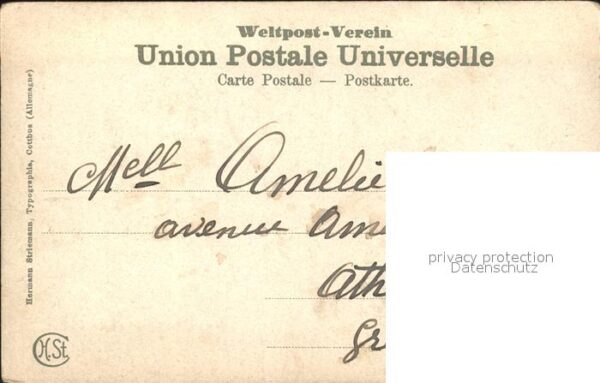 Weltpost-Verein
Union Postale Universelle
Carte Postale — Postkarte.
Hermann Striemann, Typographia, Cottbus (Allemagne)
Mell Amelie
avenue Ame
Ath
Gr
privacy protection
Datenschutz
H.St